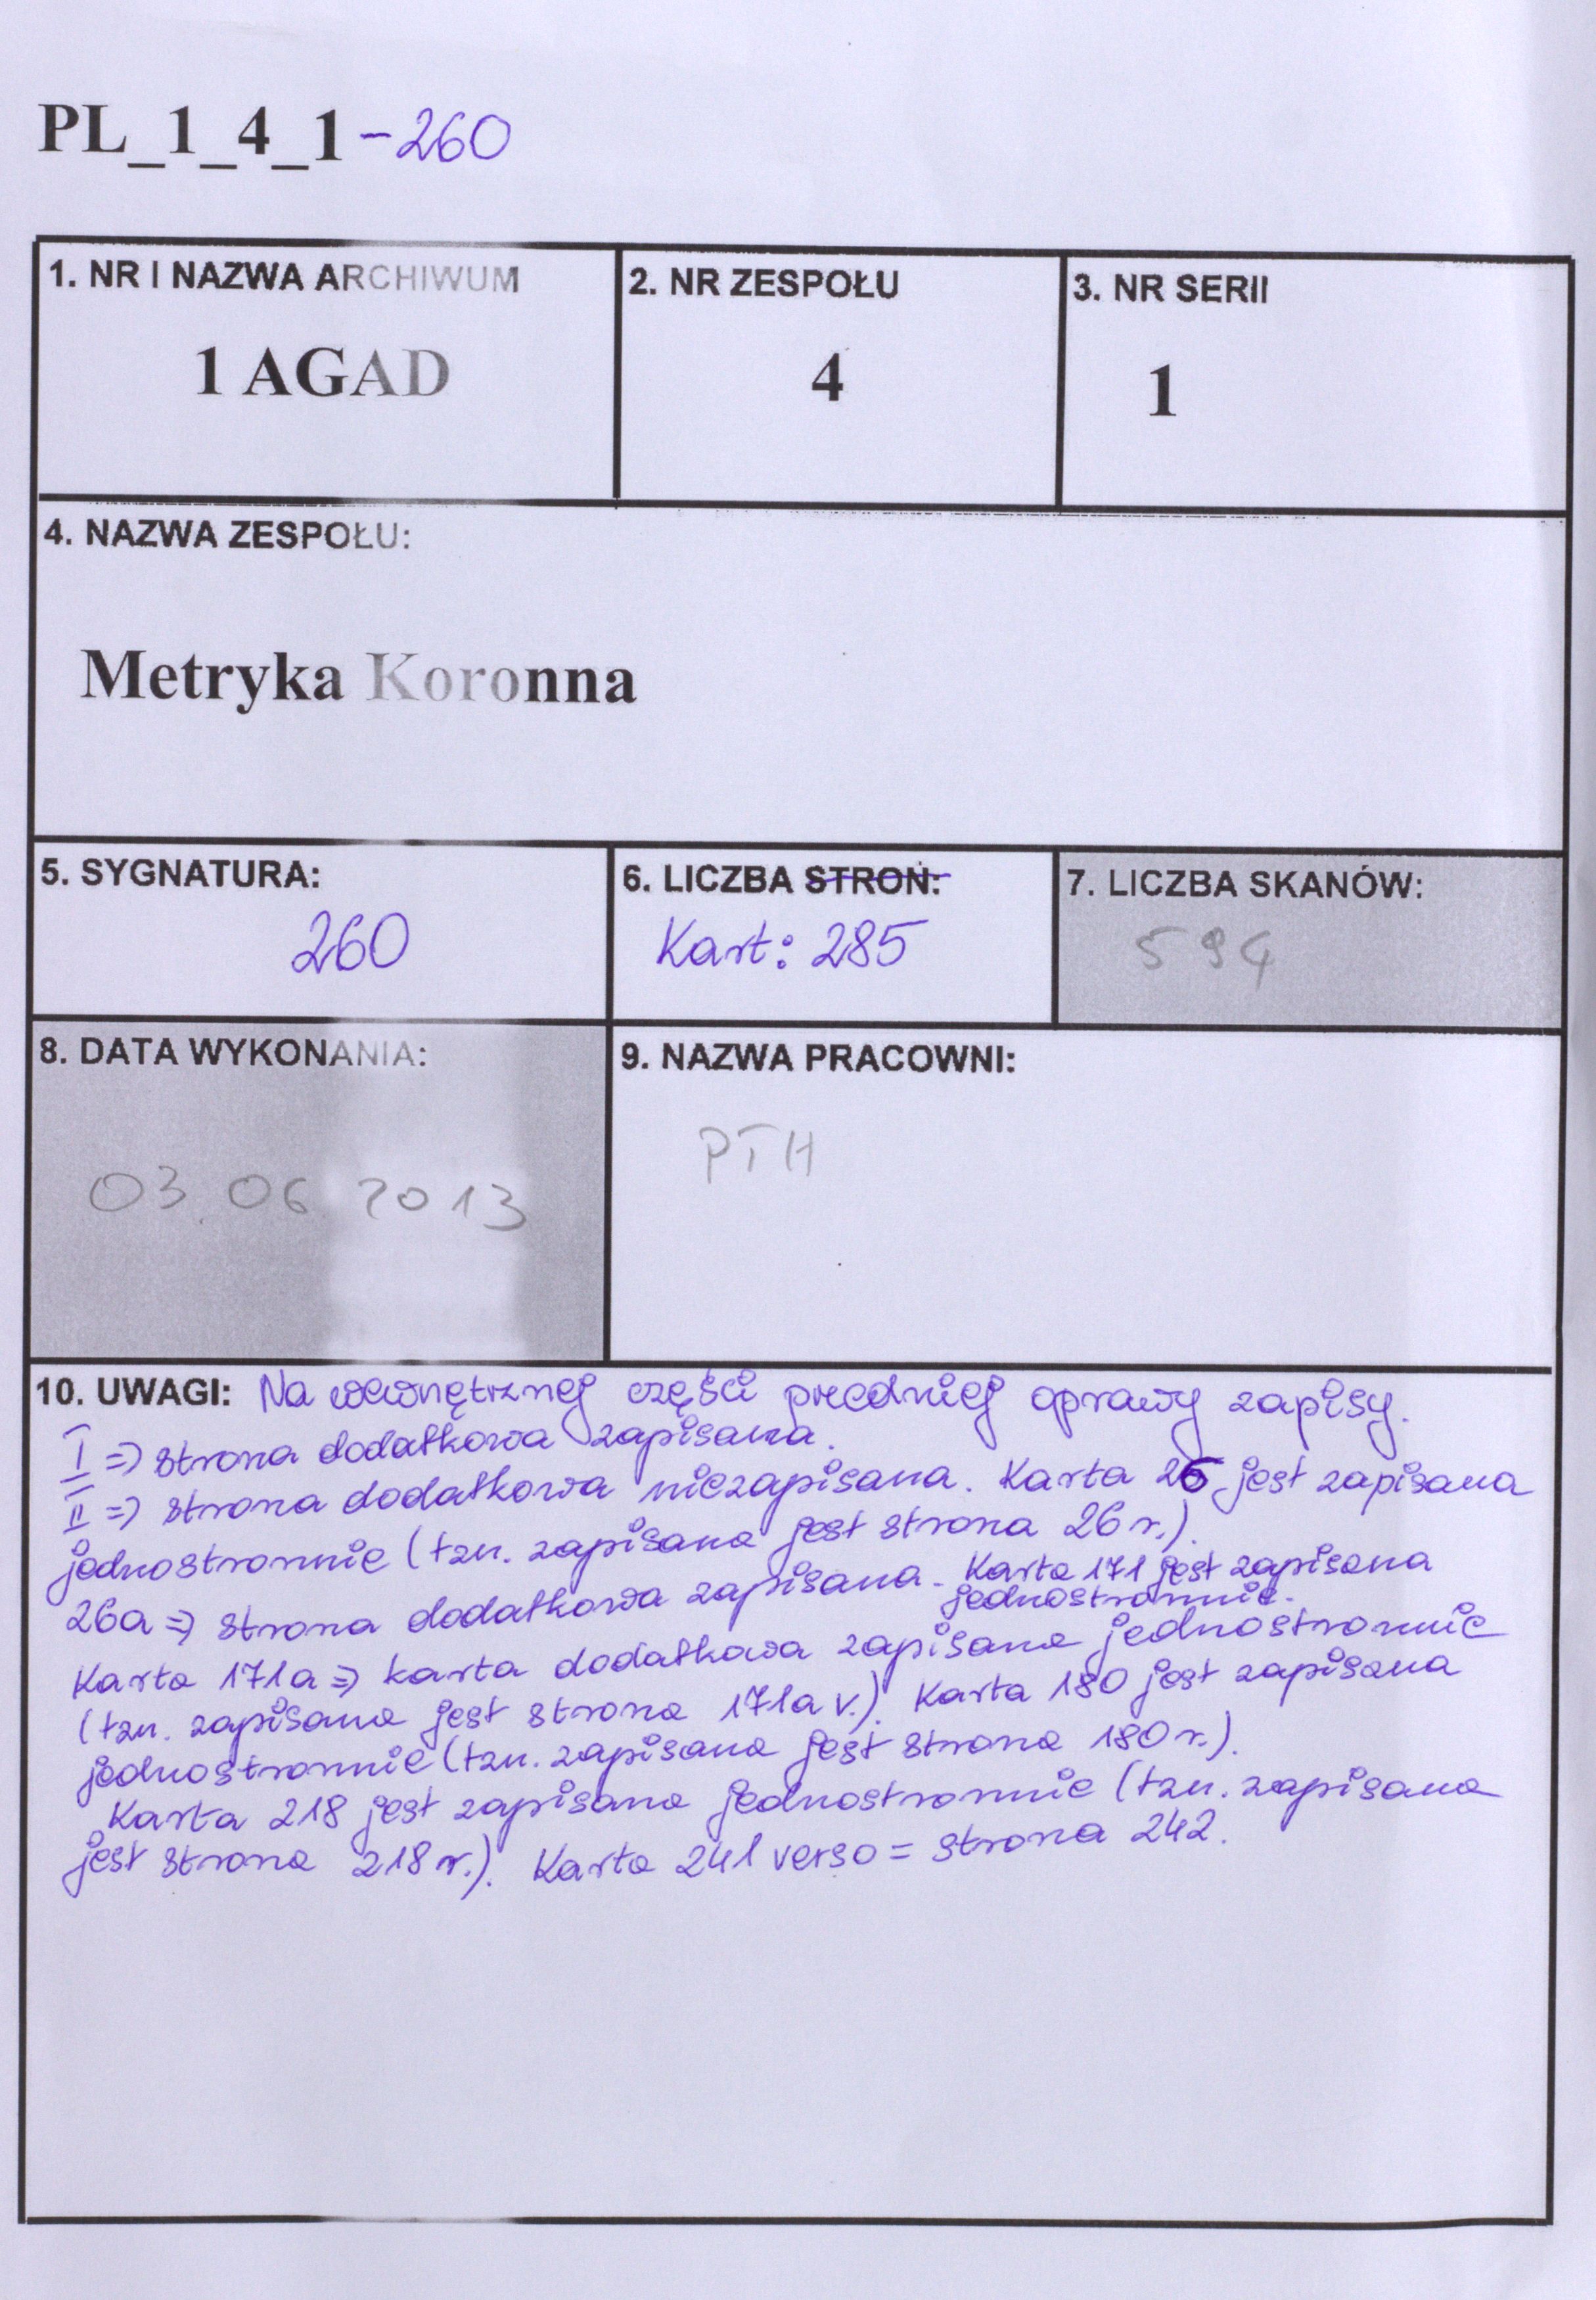 PL_1_4_1-260
1. NR I NAZWA ARCHIWUM
1 AGAD
2. NR ZESPOŁU
4
3. NR SERII
1
4. NAZWA ZESPOŁU:
Metryka Koronna
5. SYGNATURA:
260
6. LICZBA STRON:
Kart: 285
7. LICZBA SKANÓW:
594
8. DATA WYKONANIA:
03.06 2013
9. NAZWA PRACOWNI:
PTH
10. UWAGI: Na wewnętrznej części przedniej oprawy zapisy.
I => strona dodatkowa zapisana.
II => strona dodatkowa niezapisana. Karta 26 jest zapisana
jednostronnie (tzn. zapisana jest strona 26 r.).
26a => strona dodatkowa zapisana. Karta 171 jest zapisana
jednostronnie.
Karta 171a => karta dodatkowa zapisana jednostronnie
(tzn. zapisana jest strona 171a v.). Karta 180 jest zapisana
jednostronnie (tzn. zapisana jest strona 180 r.).
Karta 218 jest zapisana jednostronnie (tzn. zapisana
jest strona 218 r.). Karta 241 verso = strona 242.